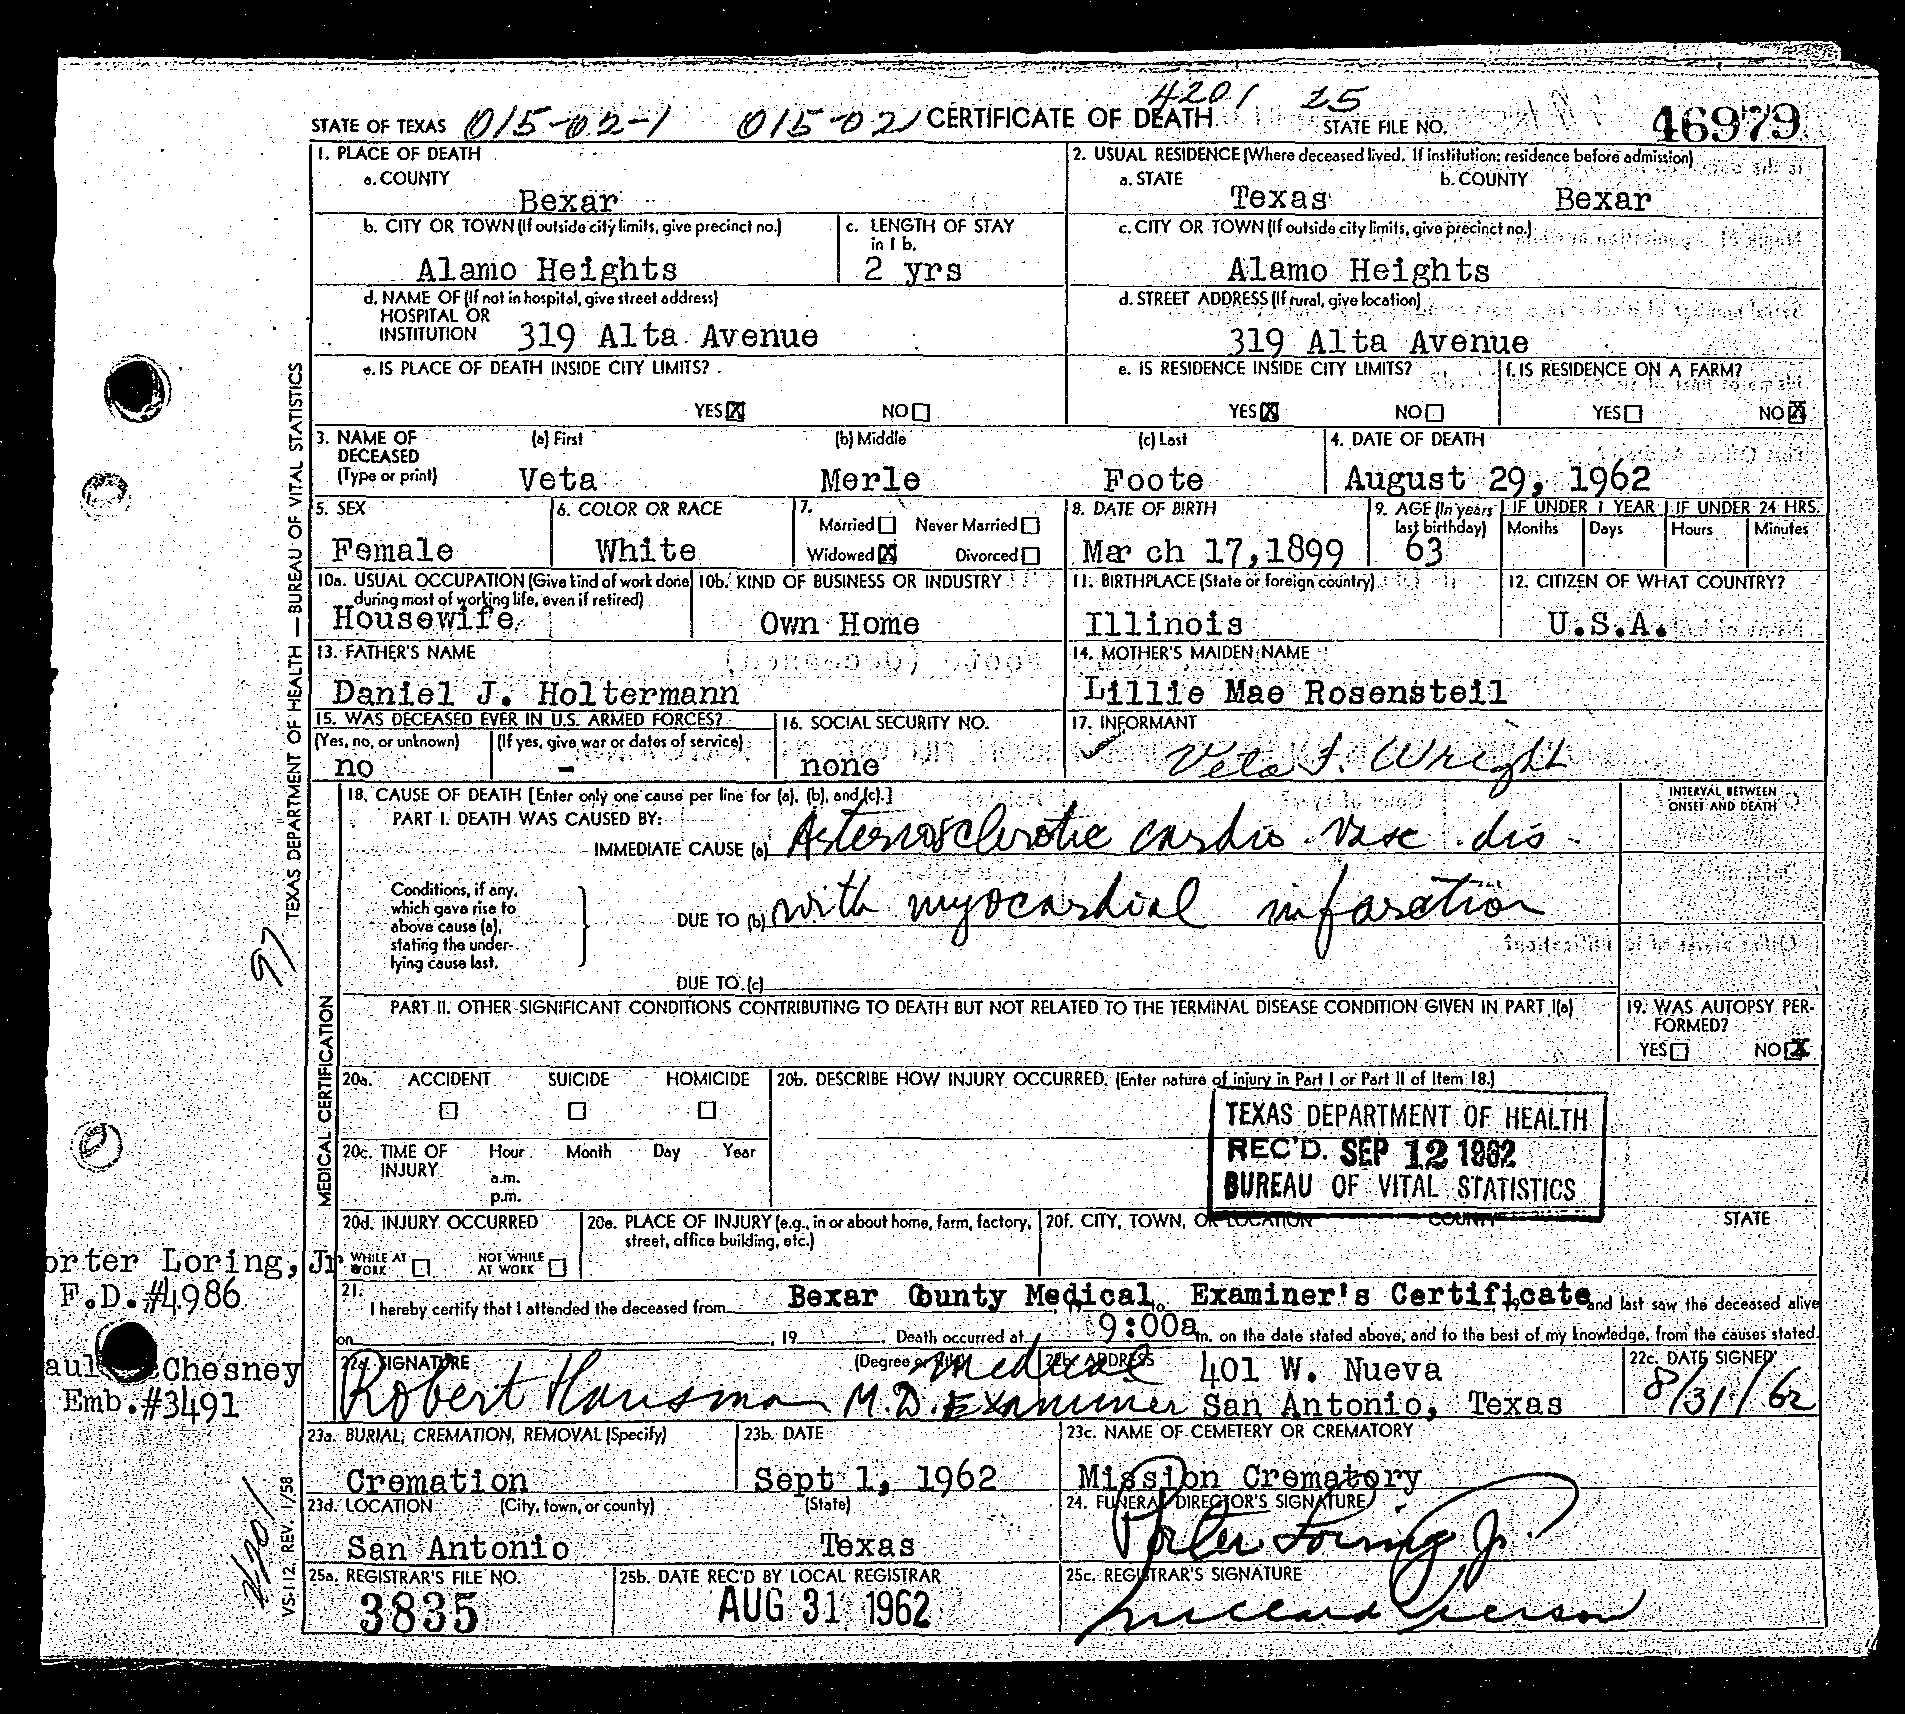 STATE OF TEXAS 015-02-1 015-021 CERTIFICATE OF DEATH 4201 25 STATE FILE NO. 46979
1. PLACE OF DEATH
a. COUNTY
Bexar
2. USUAL RESIDENCE (Where deceased lived. If institution: residence before admission)
a. STATE b. COUNTY
Texas Bexar
b. CITY OR TOWN (If outside city limits, give precinct no.)
Alamo Heights
c. LENGTH OF STAY
in 1 b.
2 yrs
c. CITY OR TOWN (If outside city limits, give precinct no.)
Alamo Heights
d. NAME OF (If not in hospital, give street address)
HOSPITAL OR
INSTITUTION 319 Alta Avenue
d. STREET ADDRESS (If rural, give location)
319 Alta Avenue
e. IS PLACE OF DEATH INSIDE CITY LIMITS?
YES☒ NO☐
e. IS RESIDENCE INSIDE CITY LIMITS?
YES☒ NO☐
f. IS RESIDENCE ON A FARM?
YES☐ NO☒
3. NAME OF (a) First (b) Middle (c) Last
DECEASED
(Type or print) Veta Merle Foote
4. DATE OF DEATH
August 29, 1962
5. SEX
Female
6. COLOR OR RACE
White
7.
Married☐ Never Married☐
Widowed☒ Divorced☐
8. DATE OF BIRTH
March 17,1899
9. AGE (In years
last birthday)
63
IF UNDER 1 YEAR IF UNDER 24 HRS.
Months Days Hours Minutes
10a. USUAL OCCUPATION (Give kind of work done
during most of working life, even if retired)
Housewife
10b. KIND OF BUSINESS OR INDUSTRY
Own Home
11. BIRTHPLACE (State or foreign country)
Illinois
12. CITIZEN OF WHAT COUNTRY?
U.S.A.
13. FATHER'S NAME
Daniel J. Holtermann
14. MOTHER'S MAIDEN NAME
Lillie Mae Rosensteil
15. WAS DECEASED EVER IN U.S. ARMED FORCES?
(Yes, no, or unknown) (If yes, give war or dates of service)
no -
16. SOCIAL SECURITY NO.
none
17. INFORMANT
Veta F. Wright
TEXAS DEPARTMENT OF HEALTH — BUREAU OF VITAL STATISTICS
97
MEDICAL CERTIFICATION
18. CAUSE OF DEATH [Enter only one cause per line for (a), (b), and (c).]
PART I. DEATH WAS CAUSED BY:
IMMEDIATE CAUSE (a) Arteriosclerotic cardio vasc dis -
INTERVAL BETWEEN
ONSET AND DEATH
Conditions, if any,
which gave rise to
above cause (a),
stating the under-
lying cause last.
DUE TO (b) with myocardial infarction
DUE TO (c)
PART II. OTHER SIGNIFICANT CONDITIONS CONTRIBUTING TO DEATH BUT NOT RELATED TO THE TERMINAL DISEASE CONDITION GIVEN IN PART I(a)
19. WAS AUTOPSY PER-
FORMED?
YES☐ NO☒
20a. ACCIDENT SUICIDE HOMICIDE
☐ ☐ ☐
20b. DESCRIBE HOW INJURY OCCURRED. (Enter nature of injury in Part I or Part II of Item 18.)
TEXAS DEPARTMENT OF HEALTH
REC'D. SEP 12 1962
BUREAU OF VITAL STATISTICS
20c. TIME OF Hour Month Day Year
INJURY
a.m.
p.m.
20d. INJURY OCCURRED
WHILE AT WORK ☐ NOT WHILE AT WORK ☐
20e. PLACE OF INJURY (e.g., in or about home, farm, factory,
street, office building, etc.)
20f. CITY, TOWN, OR LOCATION COUNTY STATE
orter Loring, Jr
F.D.#4986
21.
I hereby certify that I attended the deceased from Bexar County Medical to Examiner's Certificate 19 and last saw the deceased alive
on , 19 . Death occurred at 9:00a m. on the date stated above, and to the best of my knowledge, from the causes stated.
aul Chesney
Emb.#3491
22a. SIGNATURE (Degree or title)
Robert Hausman M.D. Medical Examiner
22b. ADDRESS
401 W. Nueva
San Antonio, Texas
22c. DATE SIGNED
8/31/62
23a. BURIAL, CREMATION, REMOVAL (Specify)
Cremation
23b. DATE
Sept 1, 1962
23c. NAME OF CEMETERY OR CREMATORY
Mission Crematory
23d. LOCATION (City, town, or county) (State)
San Antonio Texas
24. FUNERAL DIRECTOR'S SIGNATURE
Porter Loring Jr.
25a. REGISTRAR'S FILE NO.
3835
25b. DATE REC'D BY LOCAL REGISTRAR
AUG 31 1962
25c. REGISTRAR'S SIGNATURE
4201
VS-112, REV. 1/58